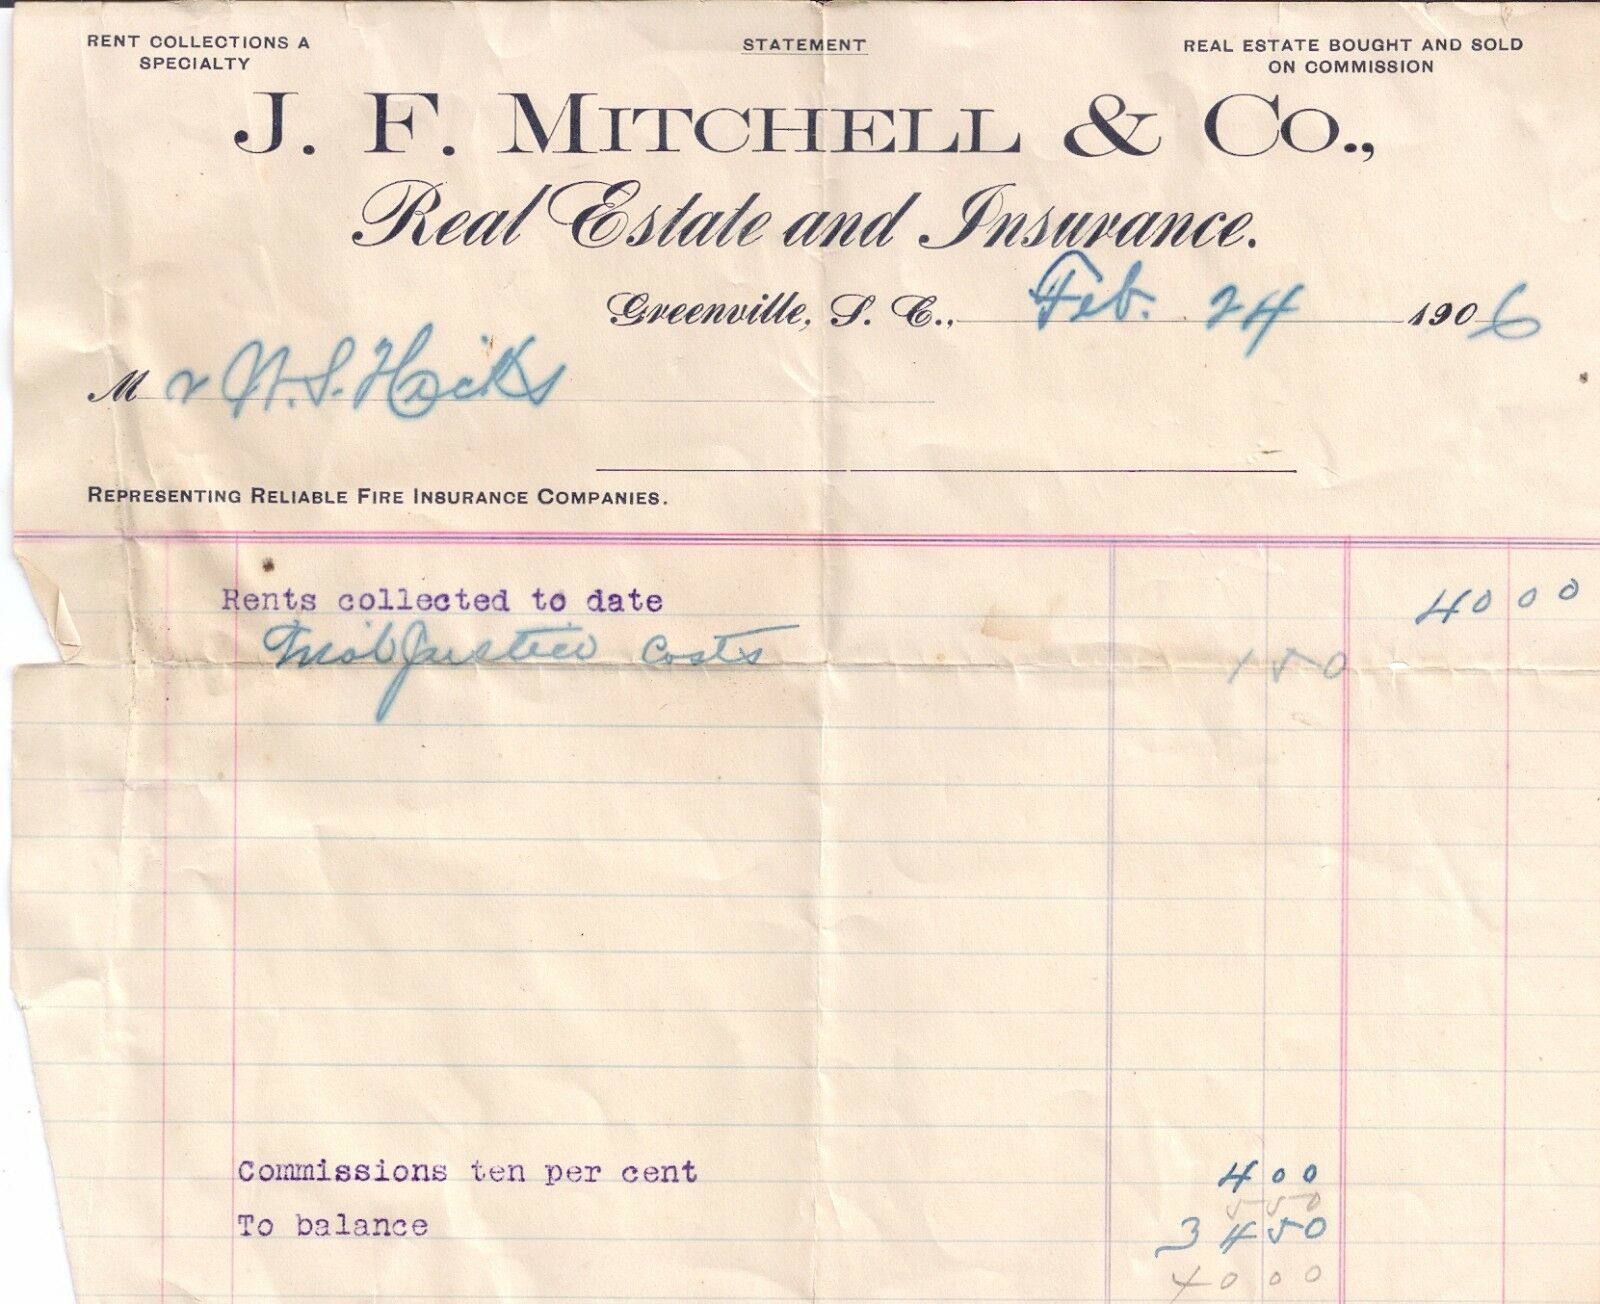 RENT COLLECTIONS A
SPECIALTY
STATEMENT
REAL ESTATE BOUGHT AND SOLD
ON COMMISSION
J. F. MITCHELL & Co.,
Real Estate and Insurance.
Greenville, S. C., Feb. 24 1906
Mr W. S. Hicks
REPRESENTING RELIABLE FIRE INSURANCE COMPANIES.
Rents collected to date 40 00
Justice Costs 1 50
Commissions ten per cent 4 00
5 50
To balance 34 50
40 00